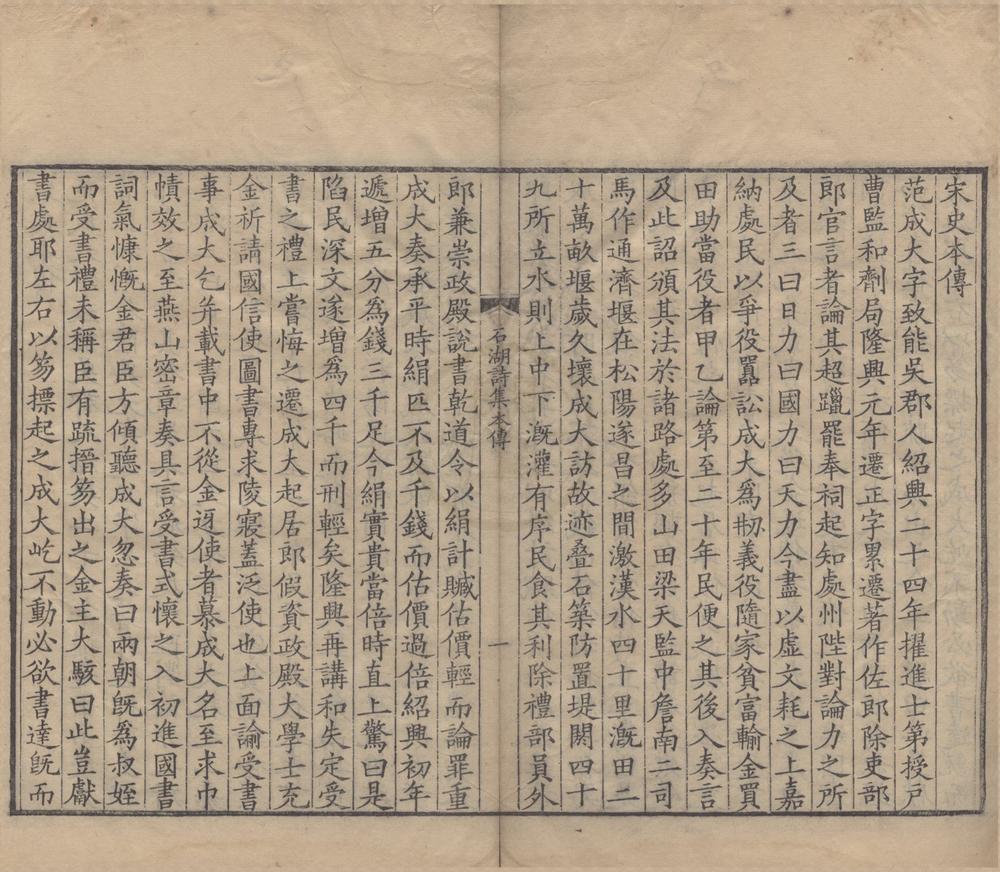 宋史本傳
范成大字致能吳郡人紹興二十四年擢進士第授戶
曹監和劑局隆興元年遷正字累遷著作佐郎除吏部
郎官言者論其超躐罷奉祠起知處州陛對論力之所
及者三曰日力曰國力曰天力今盡以虛文耗之上嘉
納處民以爭役嚚訟成大爲刱義役隨家貧富輸金買
田助當役者甲乙論第至二十年民便之其後入奏言
及此詔頒其法於諸路處多山田梁天監中詹南二司
馬作通濟堰在松陽遂昌之間激漢水四十里溉田二
十萬畝堰歲久壞成大訪故迹疊石築防置堤閼四十
九所立水則上中下溉灌有序民食其利除禮部員外
石湖詩集本傳
一
郎兼崇政殿說書乾道令以絹計贓估價輕而論罪重
成大奏承平時絹匹不及千錢而估價過倍紹興初年
遞增五分爲錢三千足今絹實貴當倍時直上驚曰是
陷民深文遂增爲四千而刑輕矣隆興再講和失定受
書之禮上嘗悔之遷成大起居郎假資政殿大學士充
金祈請國信使圖書專求陵寢蓋泛使也上面諭受書
事成大乞并載書中不從金迓使者慕成大名至求巾
幘效之至燕山密章奏具言受書式懷之入初進國書
詞氣慷慨金君臣方傾聽成大忽奏曰兩朝旣爲叔姪
而受書禮未稱臣有疏搢笏出之金主大駭曰此豈獻
書處耶左右以笏摽起之成大屹不動必欲書達旣而